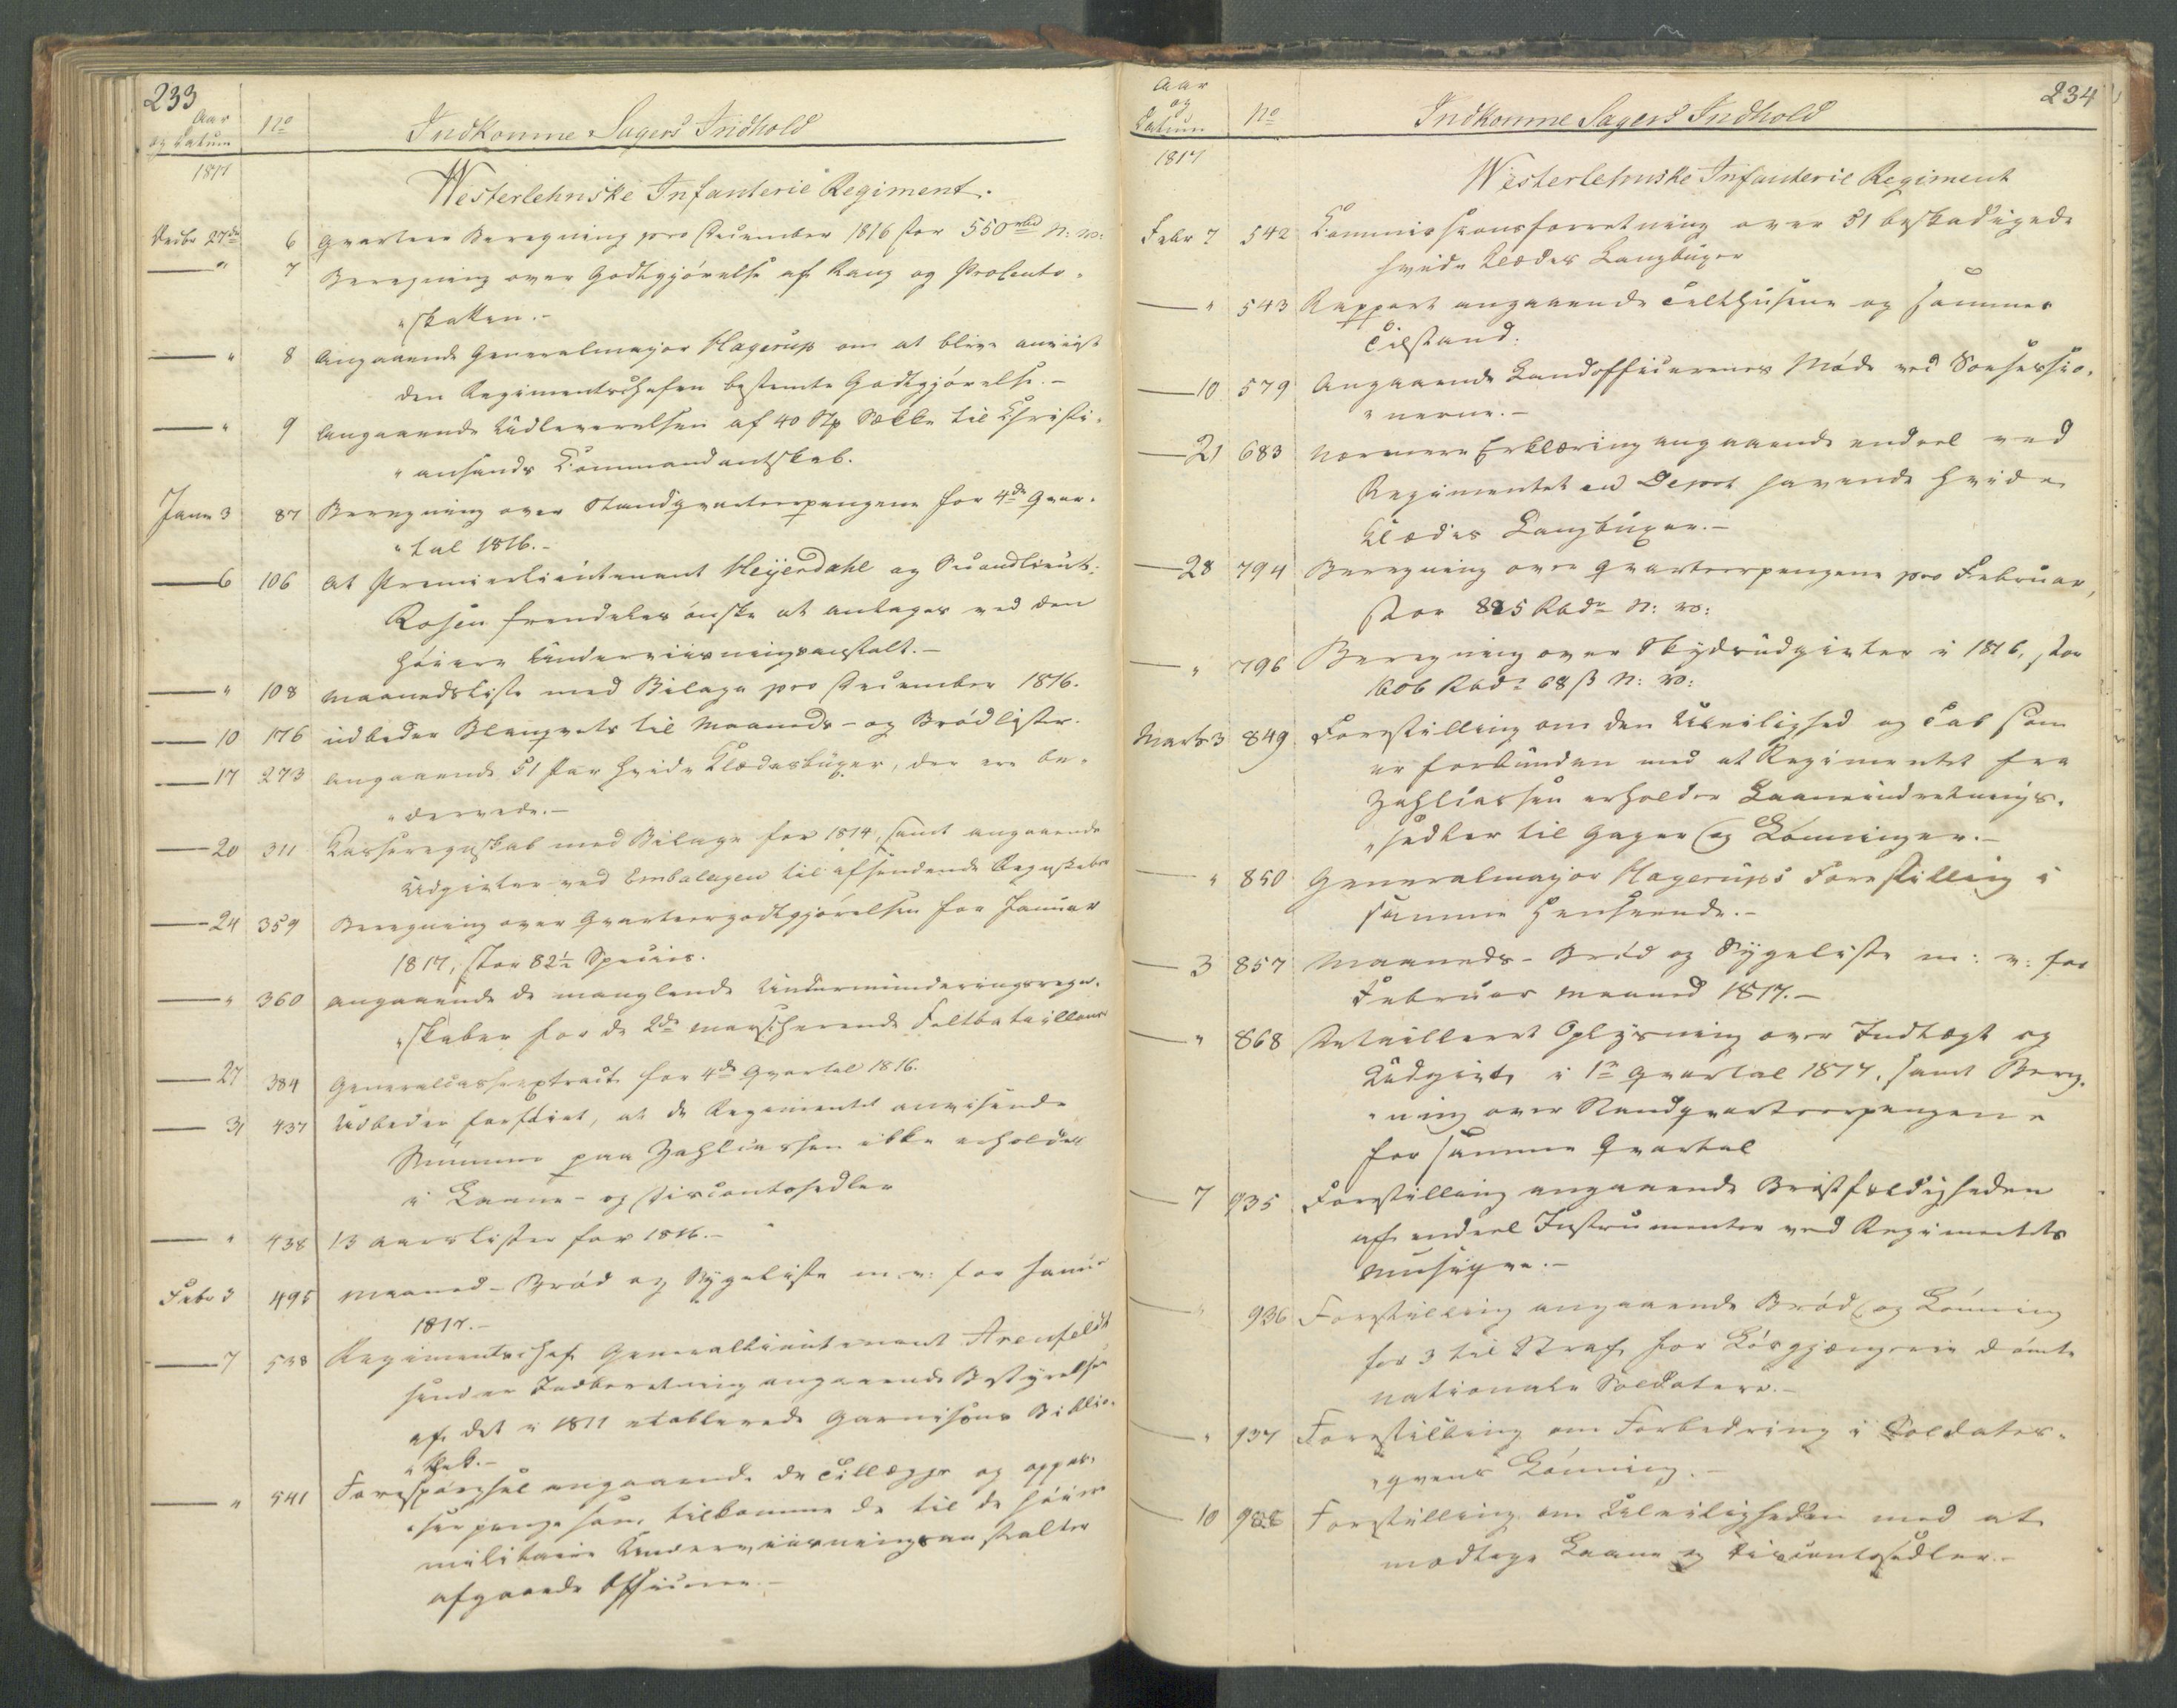 233
Aar
og Datum
No
Indkomne Sagers Indhold
1817
Westerlehnske Infanterie Regiment.
Decbr 27de 6 Qvarteer Beregning pro December 1816 stor 550 rbd N: W:
— " 7 Beregning over Godtgjörelse af Rang og Procento-
"skatten.-
— " 8 Angaaende Generalmajor Hagerup om at blive anviist
den Regimentschefen bestemte Godtgjörelse.-
— " 9 Angaaende Udleverelsen af 40 Stk Sække til Christi-
"ansands Commandantskab.
Janr 3 87 Beregning over Standqvarteerpengene for 4de Qvar-
"tal 1816.-
— 6 106 At Premierlieutenant Heyerdahl og Secondlieut:
Rosen fremdeles önske at antages ved den
höiere Underviisningsanstalt.-
— " 108 Maanedsliste med Bilage pro December 1816.
— 10 176 udbeder Blanqvets til Maaneds- og Brödlister.
— 17 273 angaaende 51 Par hvide Klædesbuxer, der ere be-
"dervede.-
— 20 311 Casseregnskab med Bilage for 1814, samt angaaende
Udgivter ved Embalagen til afsendende Regnskaber
— 24 359 Beregning over Qvarteergodtgjörelsen for Januar
1817, stor 82½ Species.
— " 360 angaaende de manglende Undermunderingsregn-
"skaber for de 2de marscherende Feltbataillons
— 27 384 Generalcasseextract for 4de Qvartal 1816.
— 31 437 Udbeder forföiet, at de Regimentet anvisende
Summer paa Zahlcassen ikke erholdes
i Laane- og Discontosedler
— " 438 13 Aarslister for 1816.-
Febr 3 495 Maaned- Bröd og Sygeliste m. v: for Janur
1817.-
— 7 538 Regimentschef Generallieutenant Arenfeldt
sender Indberetning angaaende Bestyrelsen
af det i 1811 etablerede Garnisons Biblio-
"thek.-
— " 541 Forespörgsel angaaende de Tillægge og oppas-
"serpenge som tilkomme de til de höiere
militaire Underviisningsanstalter
afgaaede Officerer.-
234
Aar
og
Datum
No
Indkomne Sagers Indhold
1817
Westerlehnske Infanterie Regiment
Febr 7 542 Commissionsforretning over 51 beskadigede
hvide Klædes Langbuxer
— " 543 Rapport angaaende Telthusene og sammes
Tilstand.
— 10 579 Angaaende Landofficerernes Möde ved Sessio-
"nerne.-
— 21 683 Nærmere Erklæring angaaende endeel ved
Regimentet en Depot havende hvide
Klædes Langbuxer.-
— 28 794 Beregning over Qvarteerpengene pro Februar,
stor 885 Rbdr N: W:
— " 796 Beregning over Skydsudgivter i 1816, stor
1606 Rbdr 68 ß N: W:
Marts 3 849 Forestilling om den Uleilighed og Tab som
er forbunden med at Regimentet fra
Zahlcassen erholder Laaneindretnings-
"sedler til Gager og Lönninger.-
— " 850 Generalmajor Hagerups Forestilling i
samme Henseende.-
— 3 857 Maaneds- Bröd og Sygeliste m: v: for
Februar Maaned 1817.-
— " 868 Detailleret Oplysning over Indtægt og
Udgivt i 1ste Qvartal 1817, samt Bereg-
"ning over Standqvarteerpengene
for samme Qvartal
— 7 935 Forestilling angaaende Bröstfældigheden
af endeel Instrumenter ved Regimentets
Musiqve.-
— " 936 Forestilling angaaende Bröd og Lönning
for 3 til Straf for Lösgjængerie dömte
nationale Soldatere.-
— " 937 Forestilling om Forbedring i Soldater-
"qvens Lönning.-
— 10 988 Forestilling om Uleiligheden med at
modtage Laane og Discontosedler.-